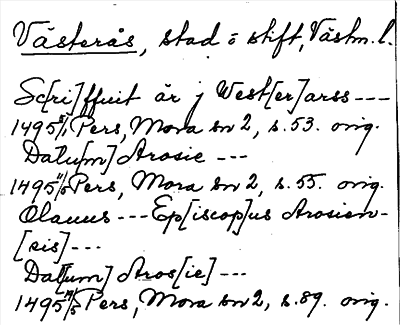 Västerås, stad o stift, Västm. l.
Sc[ri]ffuit är j West[er]arss ---
1495 5/1 Pers, Mora sn 2, s. 53. orig.
Datu[m] Arosie ---
1495 Pers, Mora sn 2, s. 55. orig.
Olauus --- Ep[iscop]us Arosien-
[sis] ---
Dat[um] Aros[ie] ---
1495 Pers, Mora sn 2, s. 89. orig.